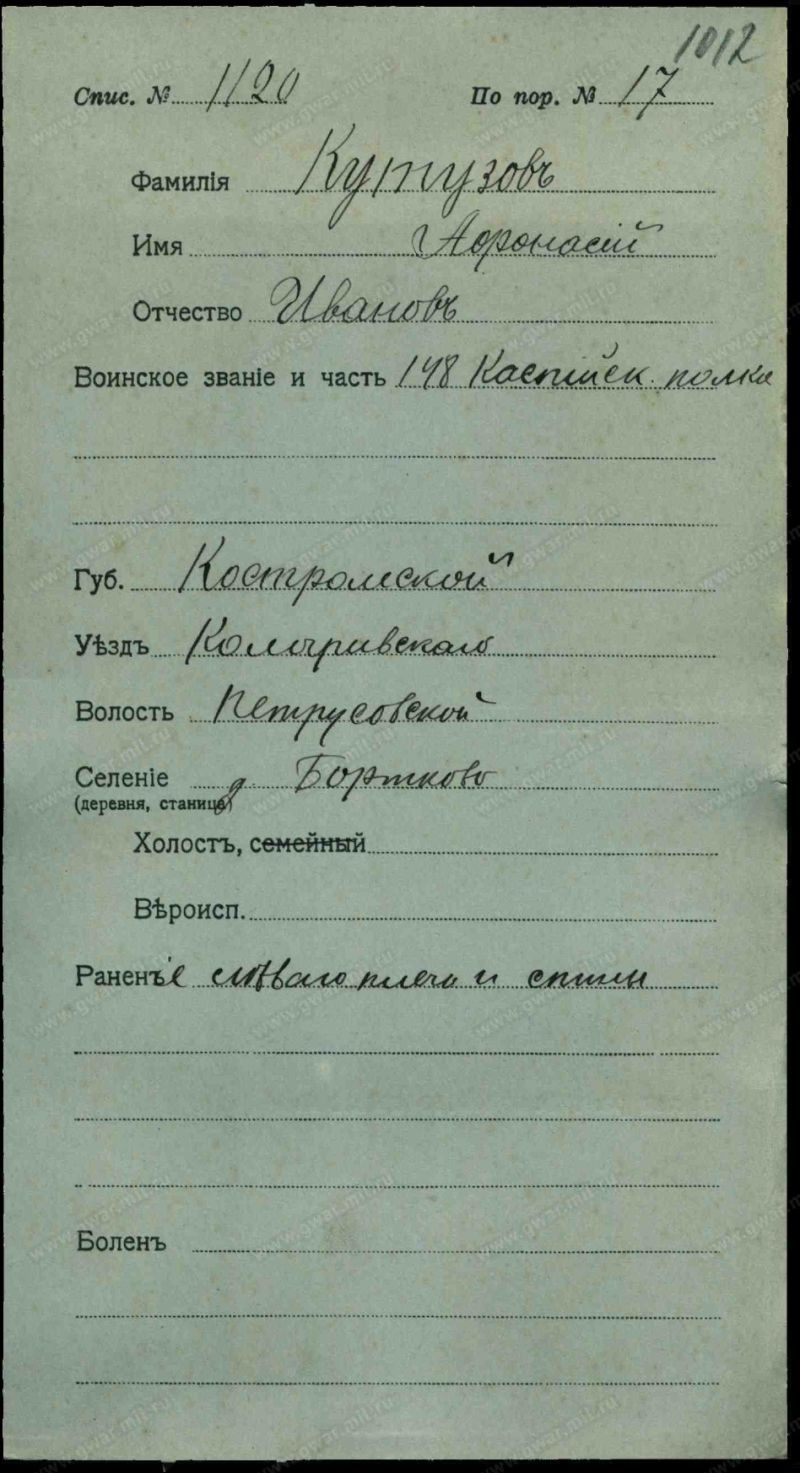 1012
Спис. № 1120 По пор. № 17
Фамилія Кутузовъ
Имя Афонасій
Отчество Ивановъ
Воинское званіе и часть 148 Каспійск. полка
Губ. Костромской
Уѣздъ Кологривскаго
Волость Петрусовской
Селеніе д. Бортково
(деревня, станица)
Холостъ, семейный
Вѣроисп.
Раненъ е лѣваго плеча и спины
Боленъ